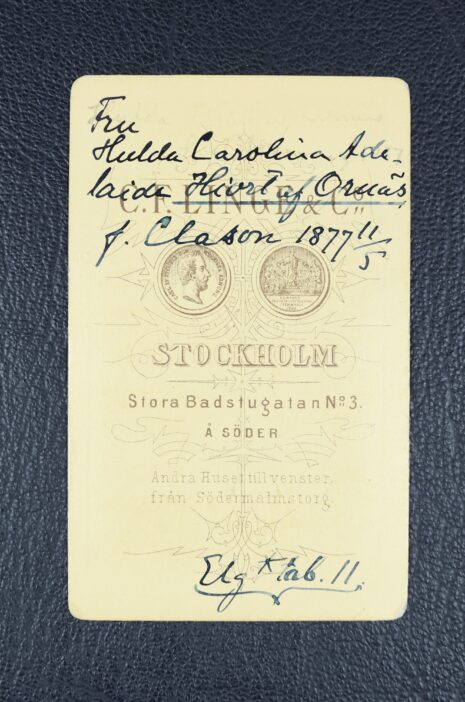 Fru
Hulda Carolina Ade-
laide Hiort af Ornäs
C. F. LINGE & Co.
f. Clason 1877 11/5
STOCKHOLM
Stora Badstugatan No 3.
Å SÖDER
Andra Huset till venster,
från Södermalmstorg.
Elg * tab. 11.